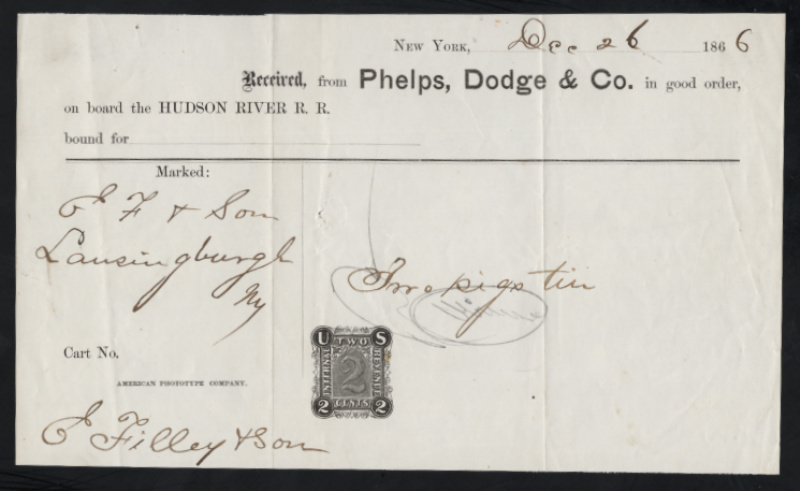 New York, Dec 26 1866
Received, from Phelps, Dodge & Co. in good order,
on board the HUDSON RIVER R. R.
bound for
Marked:
E F & Son
Lansingburgh
Ny
Two pigs tin
Cart No.
AMERICAN PHOTOTYPE COMPANY.
U S
INTERNAL
TWO
REVENUE
2
CENTS
2 2
E Filley & Son